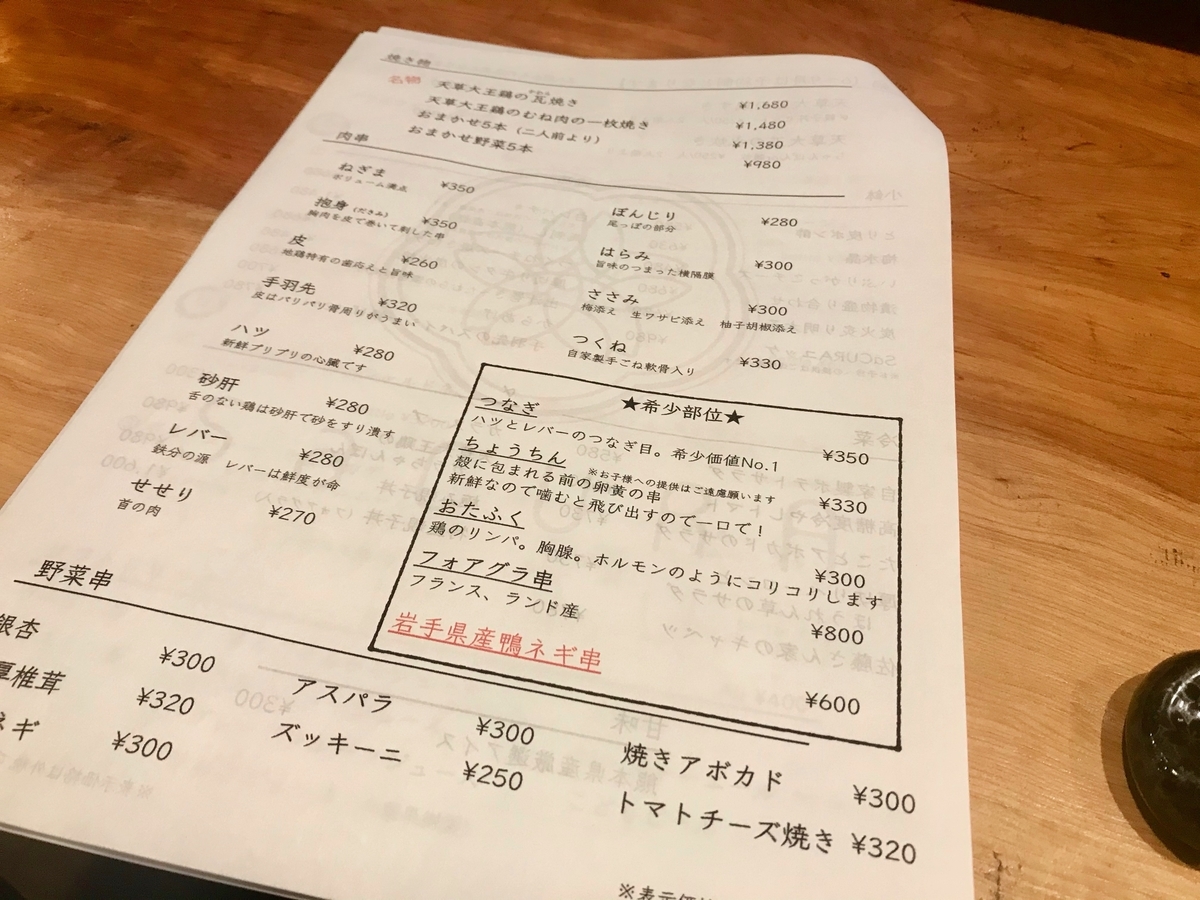 焼き物
名物 天草大王鶏の瓦焼き ¥1,680
天草大王鶏のむね肉の一枚焼き ¥1,480
おまかせ5本（二人前より） ¥1,380
おまかせ野菜5本 ¥980
肉串
ねぎま ¥350
ボリューム満点
抱身（だきみ） ¥350
胸肉を皮で巻いて刺した串
皮 ¥260
地鶏特有の歯応えと旨味
手羽先 ¥320
皮はパリパリ骨周りがうまい
ハツ ¥280
新鮮プリプリの心臓です
砂肝 ¥280
舌のない鶏は砂肝で砂をすり潰す
レバー ¥280
鉄分の源 レバーは鮮度が命
せせり ¥270
首の肉
ぼんじり ¥280
尾っぽの部分
はらみ ¥300
旨味のつまった横隔膜
ささみ ¥300
梅添え 生ワサビ添え 柚子胡椒添え
つくね ¥330
自家製手こね軟骨入り
★希少部位★
つなぎ ¥350
ハツとレバーのつなぎ目。希少価値No.1
ちょうちん ※お子様への提供はご遠慮願います ¥330
殻に包まれる前の卵黄の串
新鮮なので噛むと飛び出すので一口で！
おたふく ¥300
鶏のリンパ。胸腺。ホルモンのようにコリコリします
フォアグラ串 ¥800
フランス、ランド産
岩手県産鴨ネギ串 ¥600
野菜串
銀杏 ¥300
厚椎茸 ¥320
ネギ ¥300
アスパラ ¥300
ズッキーニ ¥250
焼きアボカド ¥300
トマトチーズ焼き ¥320
※表示価